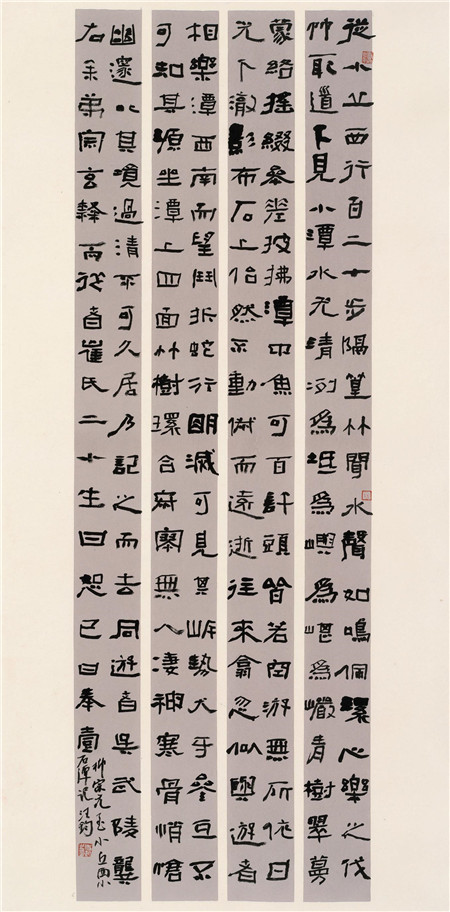 從小丘西行百二十步隔篁竹聞水聲如鳴佩環心樂之伐
竹取道下見小潭水尤清冽為坻為嶼為嵁為巖青樹翠蔓
蒙絡搖綴參差披拂潭中魚可百許頭皆若空游無所依日
光下澈影布石上佁然不動俶而遠逝往來翕忽似與遊者
相樂潭西南而望鬥折蛇行明滅可見其岸勢犬牙參互不
可知其源坐潭上四面竹樹環合寂寥無人淒神寒骨悄愴
幽邃以其境過清不可久居乃記之而去同遊者吳武陵龔
右余弟宗玄隸而從者崔氏二小生曰恕己曰奉壹
柳宗元至小丘西小
石潭記